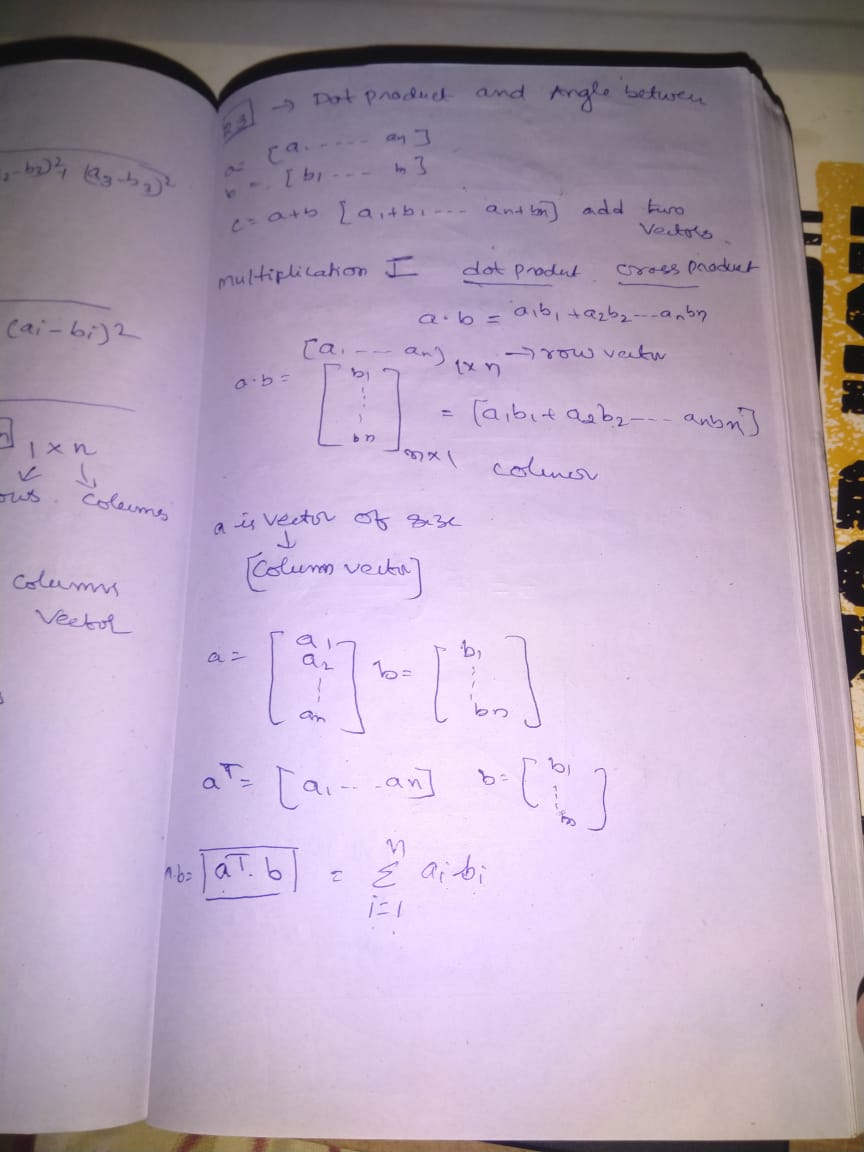 -b2)², (a3-b3)²
(ai-bi)2
1×n
colums
columns
Veetol
23 → Dot product and Angle between
a= [a1 ----- an]
b = [b1 --- bn]
c = a+b [a1+b1 --- an+bn] add two
Vectors
multiplication I dot produt cross product
a.b = a1b1 + a2b2 --- anbn
[a1 --- an] 1×n → row vector
a.b = [b1 ¦ bn] n×1 = [a1b1 + a2b2 --- anbn]
a is vector of size
↓
[Column vector]
a = [a1 a2 ¦ an] b = [b1 ¦ bn]
aT = [a1 -- - an] b = [b1 ¦ bn]
a.b = aT. b = n Σ i=1 ai bi